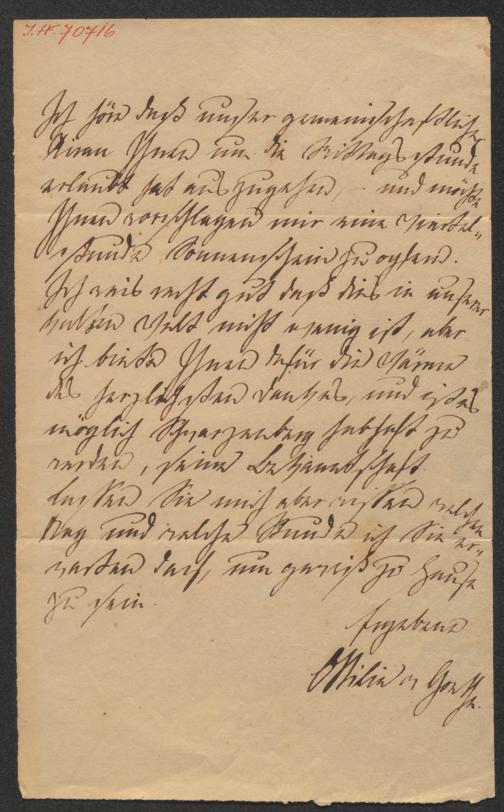 J.N. 70716
Ich höre daß unser gemeinschaftlicher
Ihnen um die Mittagsstunde
erlaubt hat auszugehen, – und möchte
Ihnen vorschlagen mir eine Viertel-
stunde Sonnenschein zu opfern.
Ich weis recht gut daß dies in unserer
kalten Welt nicht wenig ist, aber
ich biete Ihnen dafür die Wärme
des herzlichsten Dankes, und ist es
möglich Schwarzenberg habhaft zu
werden, seine Bekanntschaft.
Lassen Sie mich aber wissen welchen
Tag und welche Stunde ich Sie er-
warten darf, um gewiß zu Hause
zu sein.
Ergebene
Ottilie v Goethe.